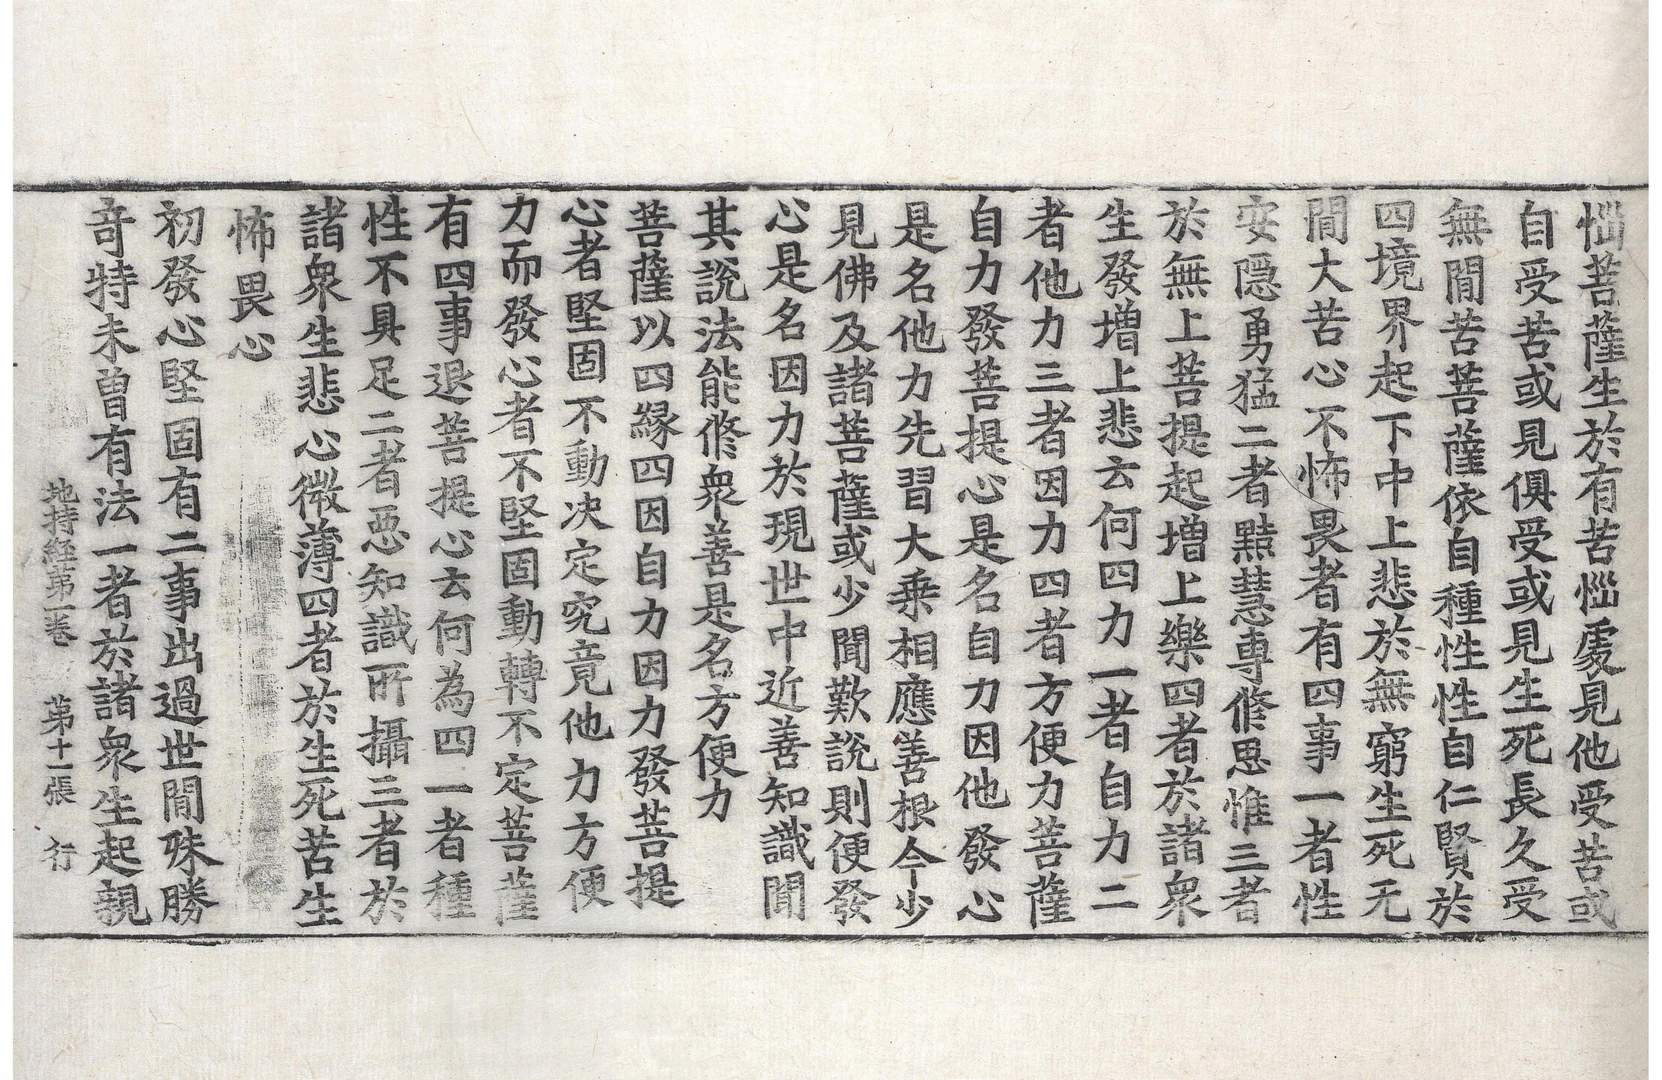 惱菩薩生於有苦惱處見他受苦或
自受苦或見俱受或見生死長久受
無閒苦菩薩依自種性性自仁賢於
四境界起下中上悲於無窮生死无
閒大苦心不怖畏者有四事一者性
安隱勇猛二者黠慧專修思惟三者
於無上菩提起增上樂四者於諸衆
生發增上悲云何四力一者自力二
者他力三者因力四者方便力菩薩
自力發菩提心是名自力因他發心
是名他力先習大乘相應善根今少
見佛及諸菩薩或少聞歎說則便發
心是名因力於現世中近善知識聞
其說法能修衆善是名方便力
菩薩以四緣四因自力因力發菩提
心者堅固不動決定究竟他力方便
力而發心者不堅固動轉不定菩薩
有四事退菩提心云何為四一者種
性不具足二者惡知識所攝三者於
諸衆生悲心微薄四者於生死苦生
怖畏心
初發心堅固有二事出過世閒殊勝
竒特未曾有法一者於諸衆生起親
地持経第一卷 第十一張 行